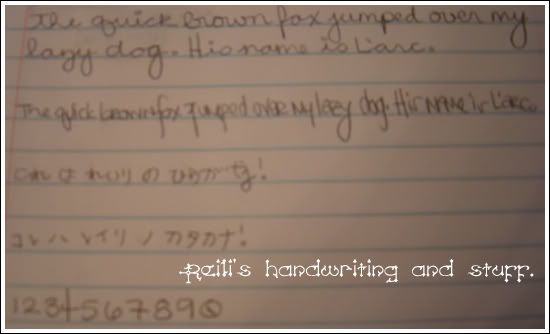 The quick brown fox jumped over my
lazy dog. His name is L'arc.
The quick brown fox jumped over my lazy dog. His name is L'arc.
これ は れいり の ひらがな!
コレ ハ レイリ ノ カタカナ!
Reili's handwriting and stuff.
1234567890